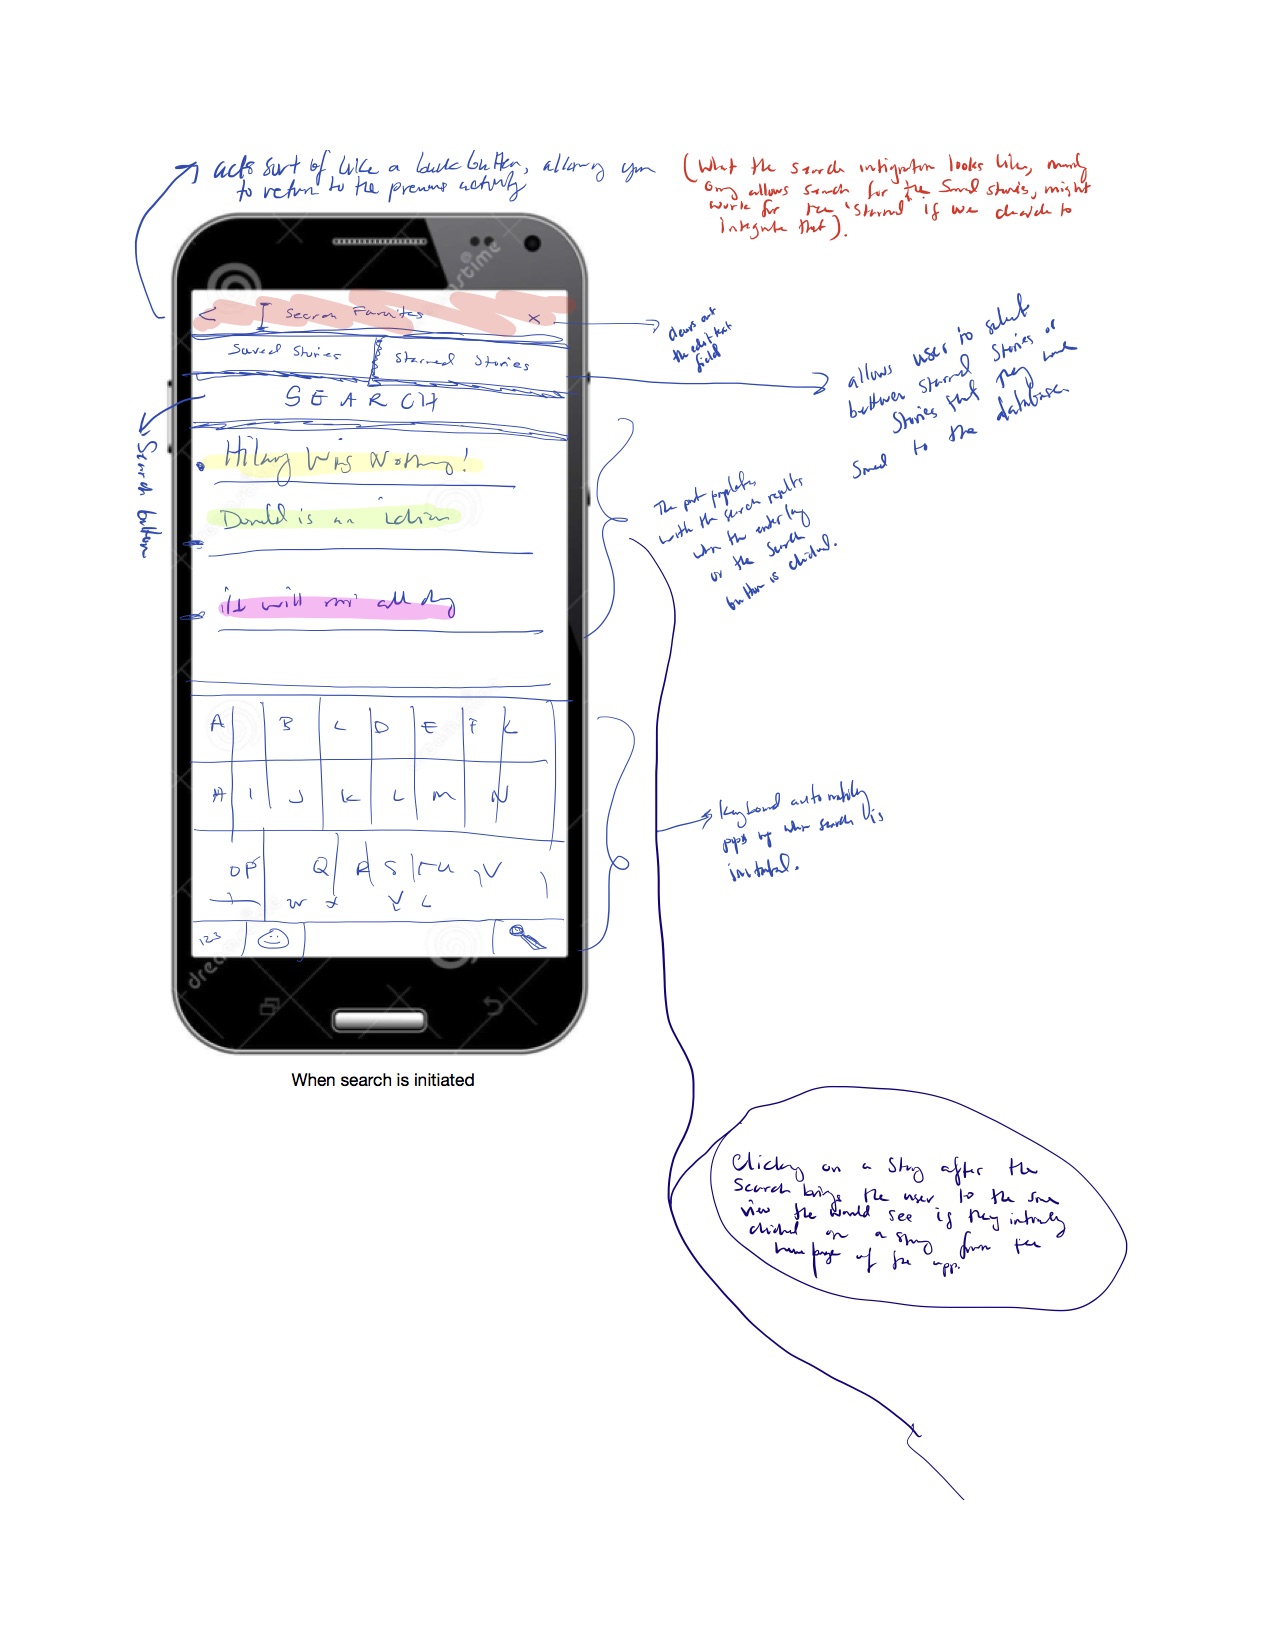 acts sort of like a back button, allowing you
to return to the previous activity
(What the search integration looks like,
only allows search for the Saved stories, might
work for the "Starred" if we decide to
integrate that).
< Search Favorites x
Saved Stories Starred Stories
SEARCH
Search button
clears out
the edit text
field
allows user to select
between starred Stories or
Stories that they have
Saved to the database
Hilary Was Nothing!
Donald is an
it will all day
The part populates
with the search results
when the enter key
or the search
button is clicked.
A B C D E F
H I J K L M N
O P Q R S T U V
W X Y
123
Keyboard automatically
pops up when search is
initiated.
dreamstime
When search is initiated
Clicking on a Story after the
Search brings the user to the same
view the would see if they
clicked on a story from the
home page of the app.